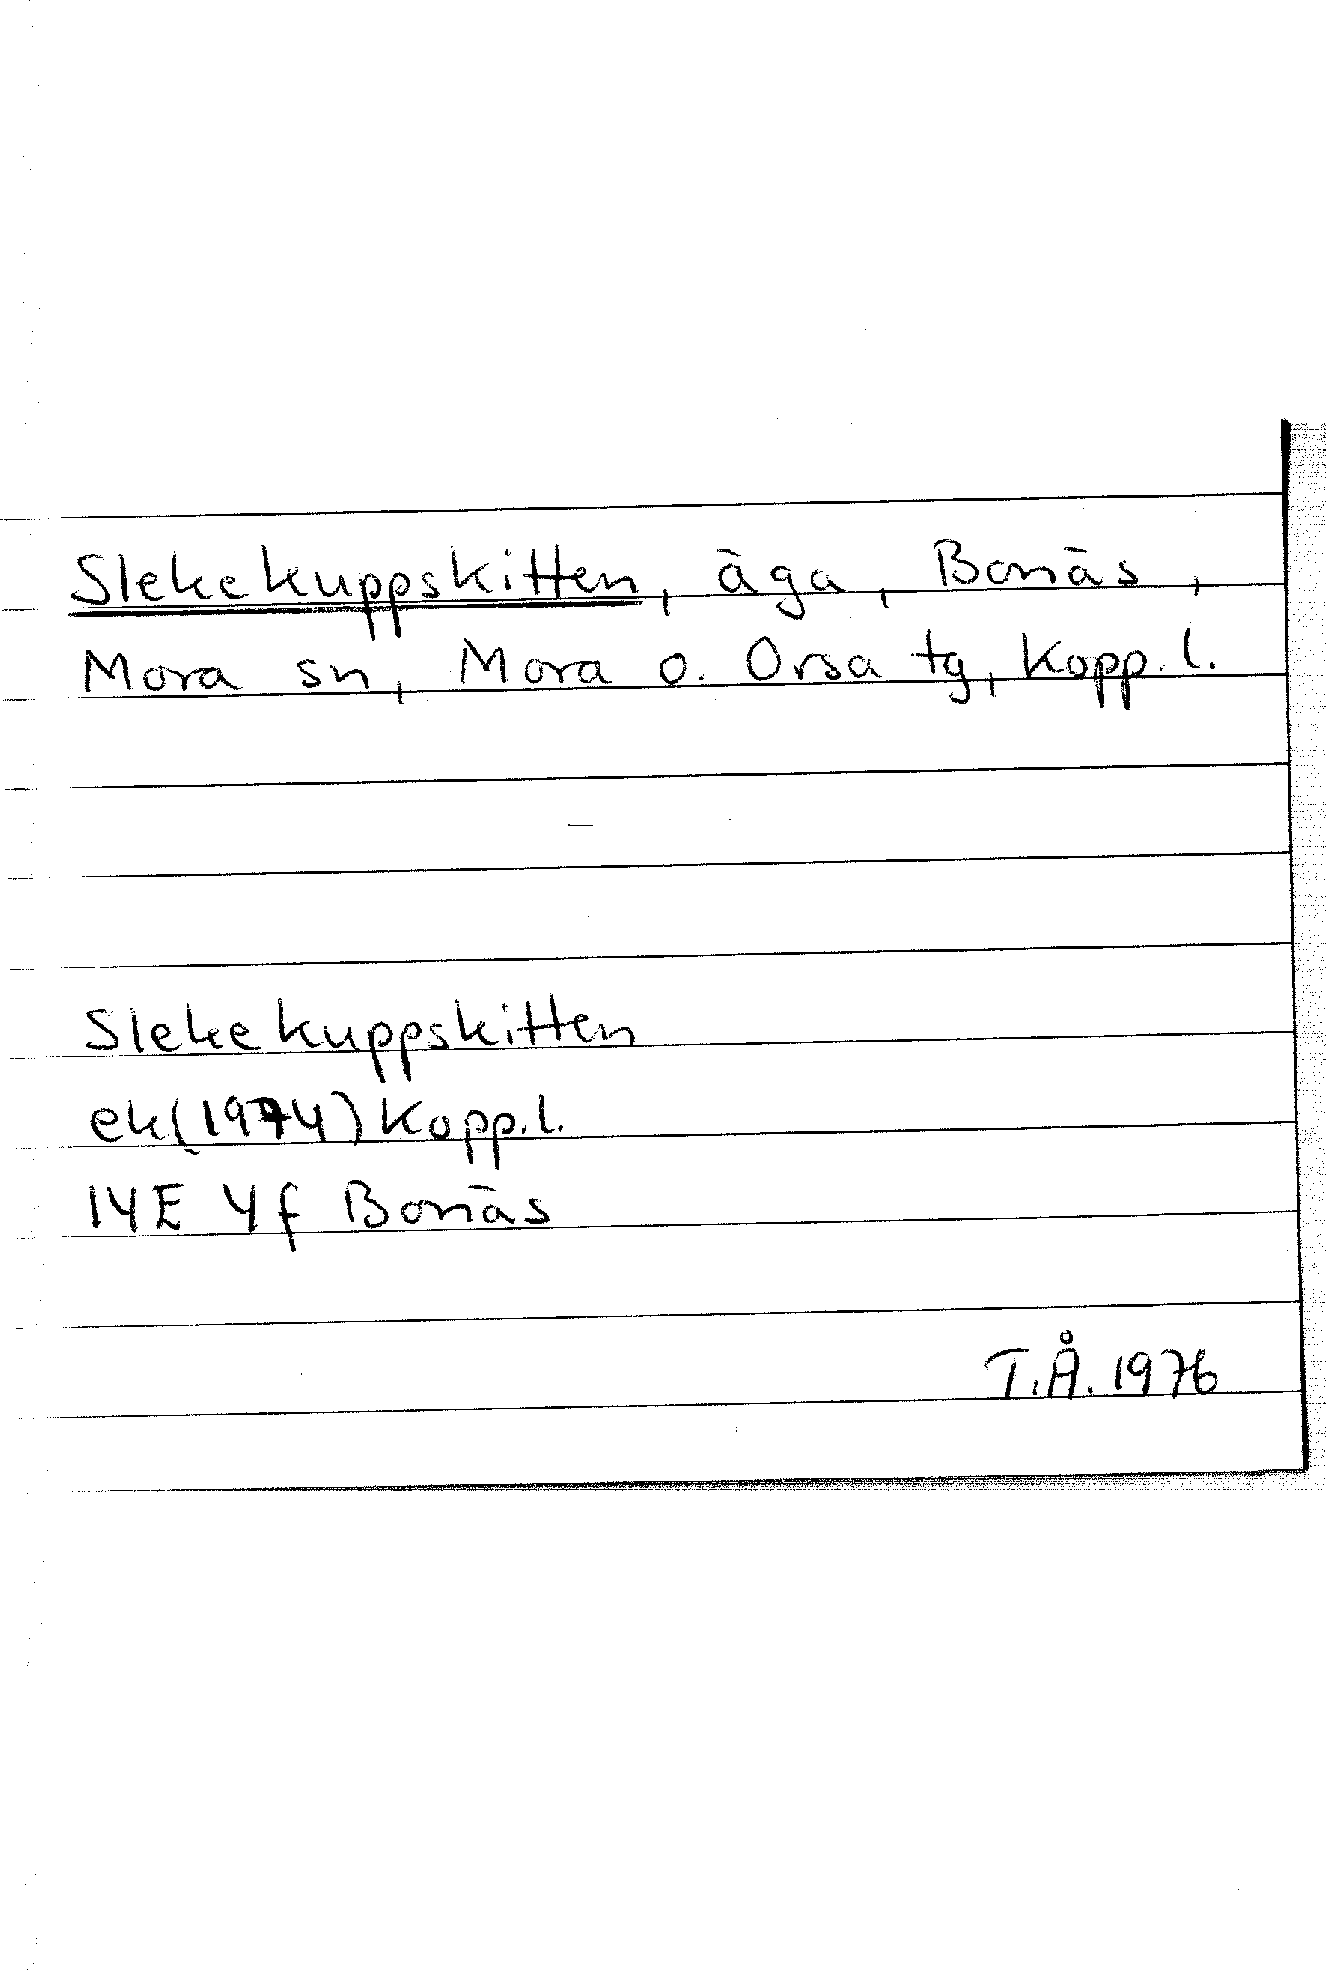 Slekekuppskitten, äga, Bonäs,
Mora sn, Mora o. Orsa tg, Kopp. l.
Slekekuppskitten
ek(1974) Kopp. l.
14E 4f Bonäs
T.Å. 1976